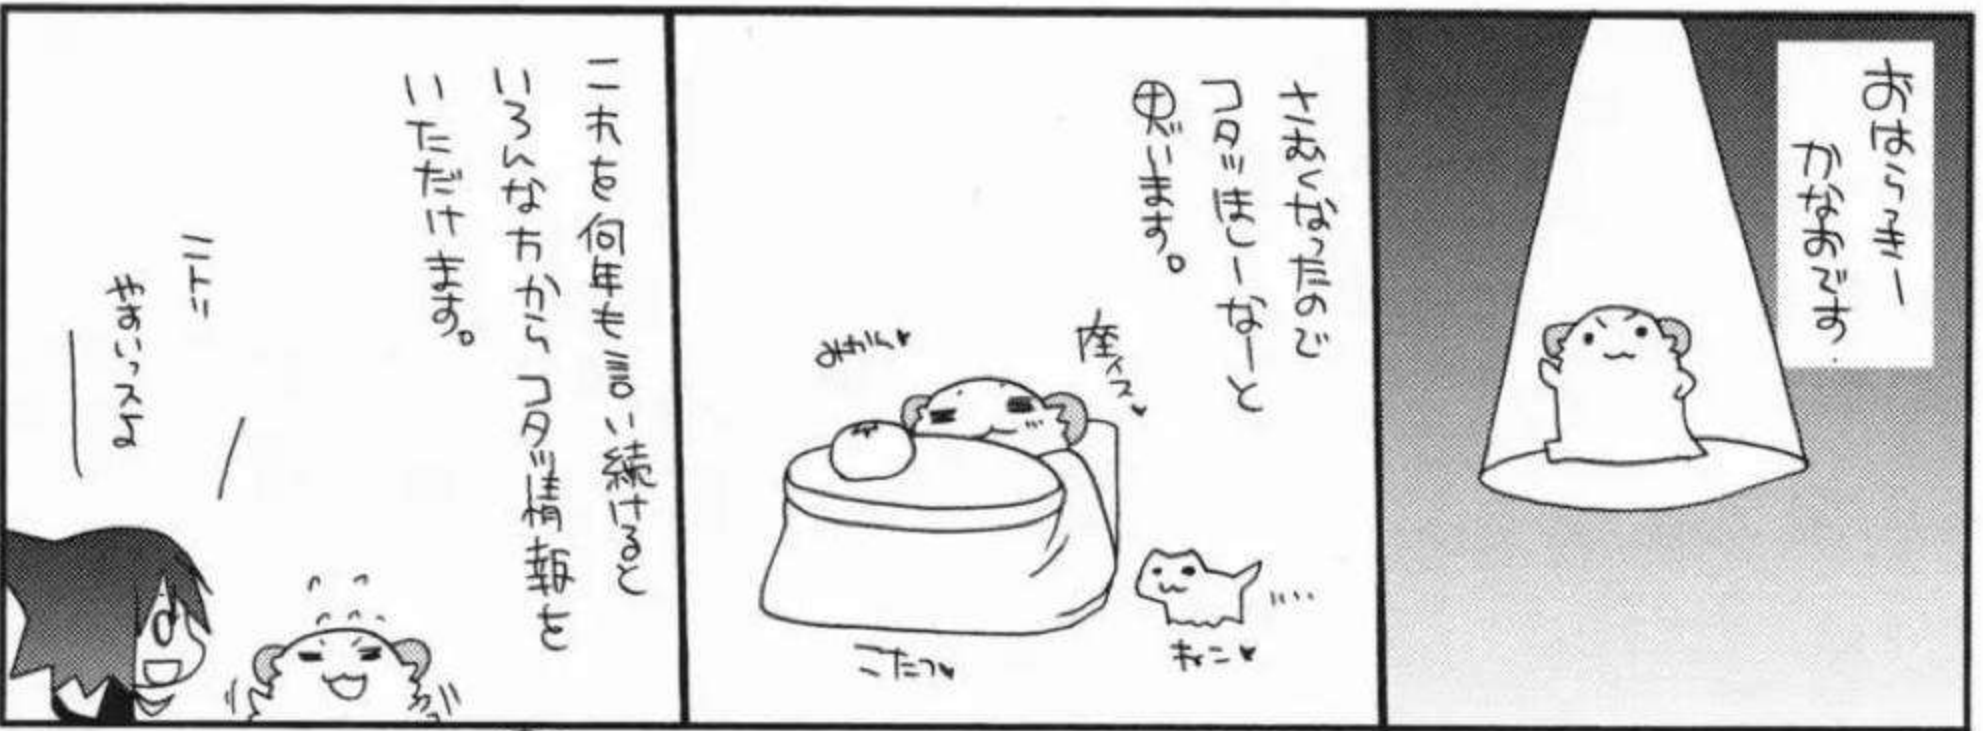 おはらっきー
かなおです.
さむくなったので
コタツほしーなーと
思います。
みかん♥
座イス♥
こたつ♥
ねこ♥
これを何年も言い続けると
いろんな方からコタツ情報を
いただけます。
ニトリ
やすいっスよ